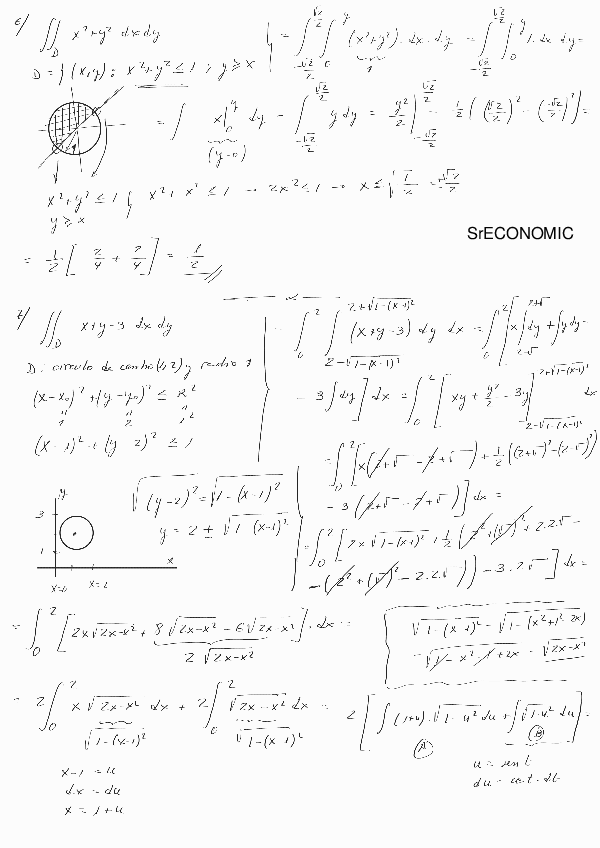 6/ ∬_D x²+y² dxdy
D = { (x,y) : x²+y² ≤ 1 ; y ≥ x
= ∫_{-√2/2}^{√2/2} ∫_0^y (x²+y²) · dx · dy = ∫_{-√2/2}^{√2/2} ∫_0^y 1 · dx dy =
1
= ∫ x|_0^y dy - ∫_{-√2/2}^{√2/2} y dy = y²/2 |_{-√2/2}^{√2/2} - 1/2 ((√2/2)² - (-√2/2)²) =
(y-0)
x²+y² ≤ 1 } x²+x² ≤ 1 → 2x² ≤ 1 → x ≤ √(1/2) = √2/2
y ≥ x
SrECONOMIC
= 1/2 [ 2/4 + 2/4 ] = 1/2
7/ ∬_D x+y-3 dx dy
D: circulo de centro (1,2) y radio 1
(x-x₀)² + (y-y₀)² ≤ R²
(x-1)² + (y-2)² ≤ 1
y
3
1
x
x=0 x=2
√(y-2)² = √1-(x-1)²
y = 2 ± √1-(x-1)²
= ∫_0^2 ∫_{2-√1-(x-1)²}^{2+√1-(x-1)²} (x+y-3) dy dx = ∫_0^2 [ x ∫_{2-√}^{2+√} dy + ∫ y dy -
- 3 ∫ dy ] dx = ∫_0^2 [ xy + y²/2 - 3y ]_{2-√1-(x-1)²}^{2+√1-(x-1)²} dx
= ∫_0^2 [ x(2+√ - 2+√) + 1/2 ((2+√)² - (2-√)²)
- 3(2+√ - 2+√) ] dx =
= ∫_0^2 [ 2x√1-(x-1)² + 1/2 (2² + (√)² + 2.2√ -
- (2² + (√)² - 2.2√)) - 3.2√ ] dx =
= ∫_0^2 [ 2x√2x-x² + 8√2x-x² - 6√2x-x² ] · dx =
2√2x-x²
√1-(x-1)² = √1-(x²+1-2x)
= √1-x²-1+2x = √2x-x²
= 2 ∫_0^2 x√2x-x² dx + 2 ∫_0^2 √2x-x² dx = 2 [ ∫ (1+u) · √1-u² du + ∫ √1-u² du ] =
√1-(x-1)² √1-(x-1)² A B
x-1 = u
dx = du
x = 1+u
u = sen t
du = cos t · dt